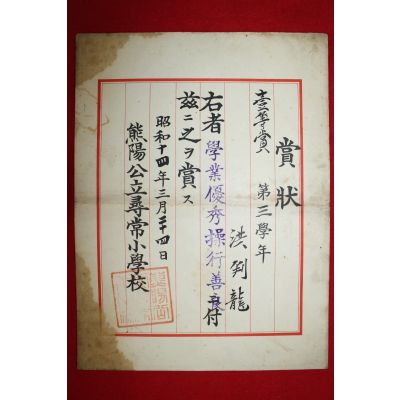 賞狀
壹等賞 第三學年
洪判龍
右者學業優秀操行善良付
玆ニ之ヲ賞ス
昭和十四年三月二十四日
熊陽公立尋常小學校